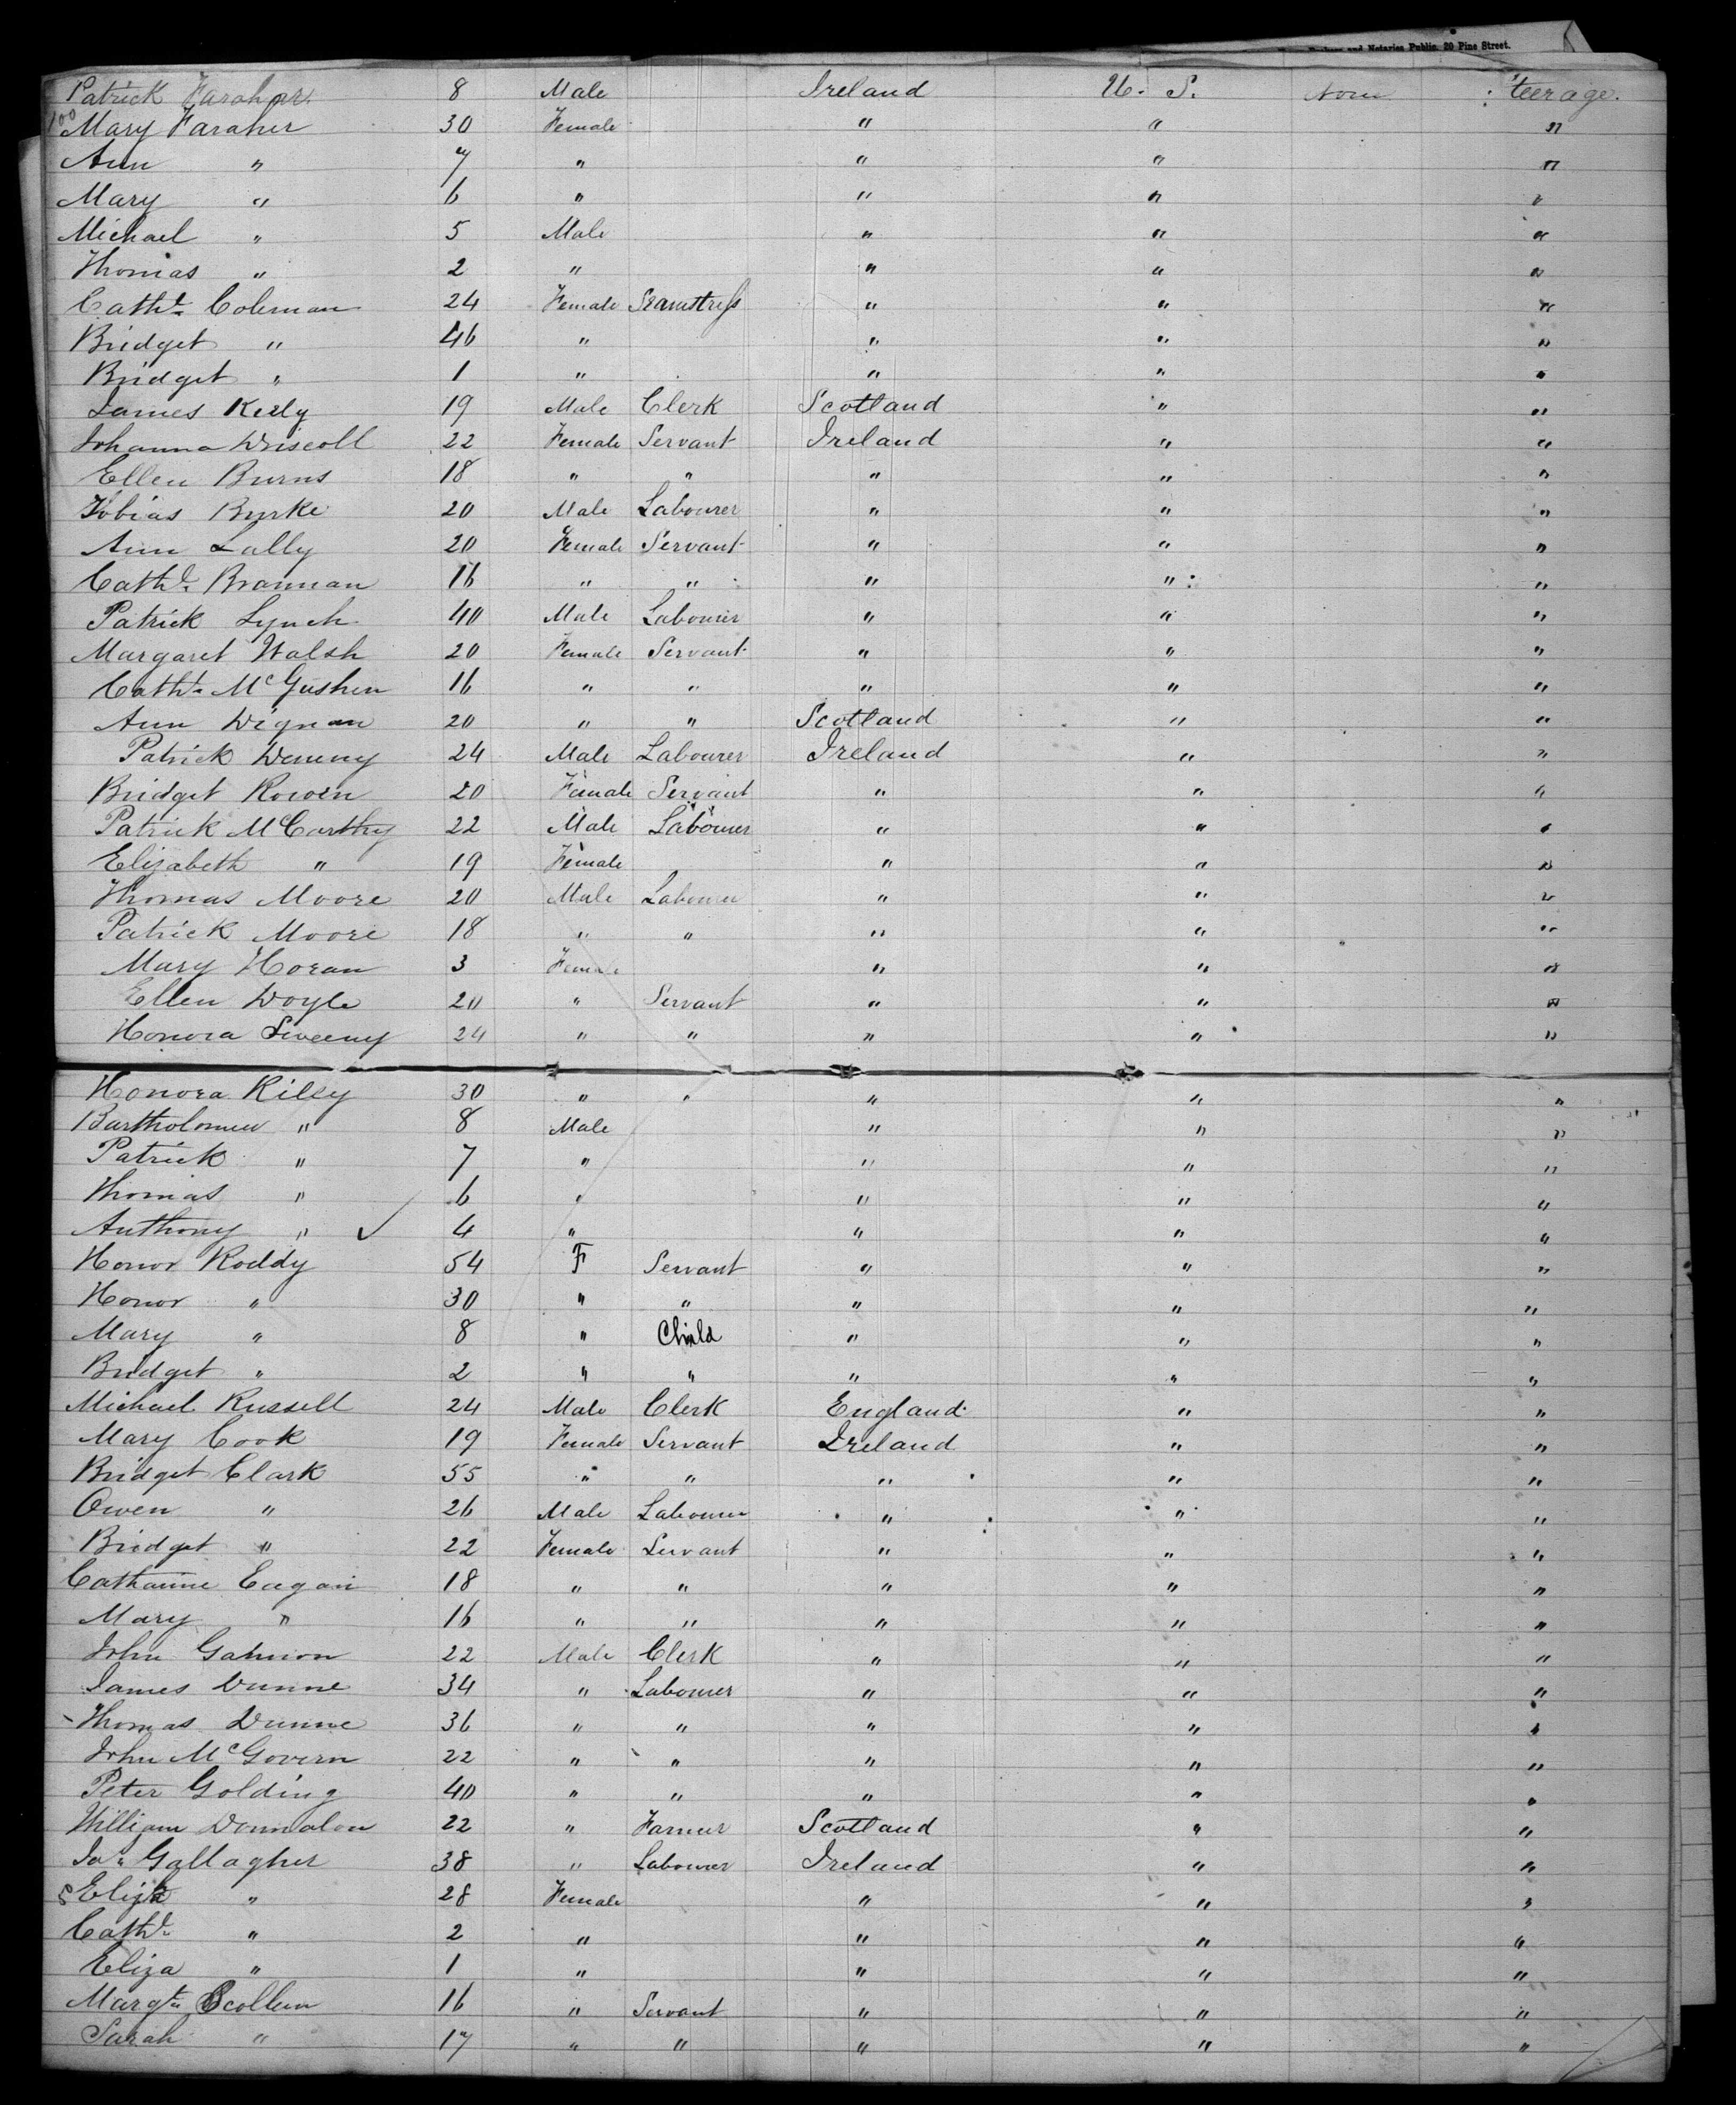 Brokers and Notaries Public, 20 Pine Street.
Patrick Faraher 8 Male Ireland U. S. None Steerage.
100 Mary Faraher 30 Female " " "
Ann " 7 " " " "
Mary " 6 " " " "
Michael " 5 Male " " "
Thomas " 2 " " " "
Cathe. Coleman 24 Female Seamstress " " "
Bridget " 46 " " " "
Bridget " 1 " " " "
James Kiely 19 Male Clerk Scotland " "
Johanna Driscoll 22 Female Servant Ireland " "
Ellen Burns 18 " " " " "
Tobias Burke 20 Male Labourer " " "
Ann Lally 20 Female Servant " " "
Cathe. Brannan 16 " " " " "
Patrick Lynch 40 Male Labourer " " "
Margaret Walsh 20 Female Servant " " "
Cathe. McGushen 16 " " " " "
Ann Dignan 20 " " Scotland " "
Patrick Denny 24 Male Labourer Ireland " "
Bridget Rowen 20 Female Servant " " "
Patrick McCarthy 22 Male Labourer " " "
Elizabeth " 19 Female " " "
Thomas Moore 20 Male Labourer " " "
Patrick Moore 18 " " " " "
Mary Horan 3 Female " " "
Ellen Doyle 20 " Servant " " "
Honora Sweeny 24 " " " " "
Honora Riley 30 " " " " "
Bartholomew " 8 Male " " "
Patrick " 7 " " " "
Thomas " 6 " " " "
Anthony " ✓ 4 " " " "
Honor Roddy 54 F Servant " " "
Honor " 30 " " " " "
Mary " 8 " Child " " "
Bridget " 2 " " " " "
Michael Russell 24 Male Clerk England " "
Mary Cook 19 Female Servant Ireland " "
Bridget Clark 55 " " " " "
Owen " 26 Male Labourer " " "
Bridget " 22 Female Servant " " "
Catharine Eagan 18 " " " " "
Mary " 16 " " " " "
John Gannon 22 Male Clerk " " "
James Dunne 34 " Labourer " " "
Thomas Dunne 36 " " " " "
John McGovern 22 " " " " "
Peter Golding 40 " " " " "
William Donnalon 22 " Farmer Scotland " "
Jas. Gallagher 38 " Labourer Ireland " "
Eliza " 28 Female " " "
Cathe. " 2 " " " "
Eliza " 1 " " " "
Margt. Scollen 16 " Servant " " "
Sarah " 17 " " " " "